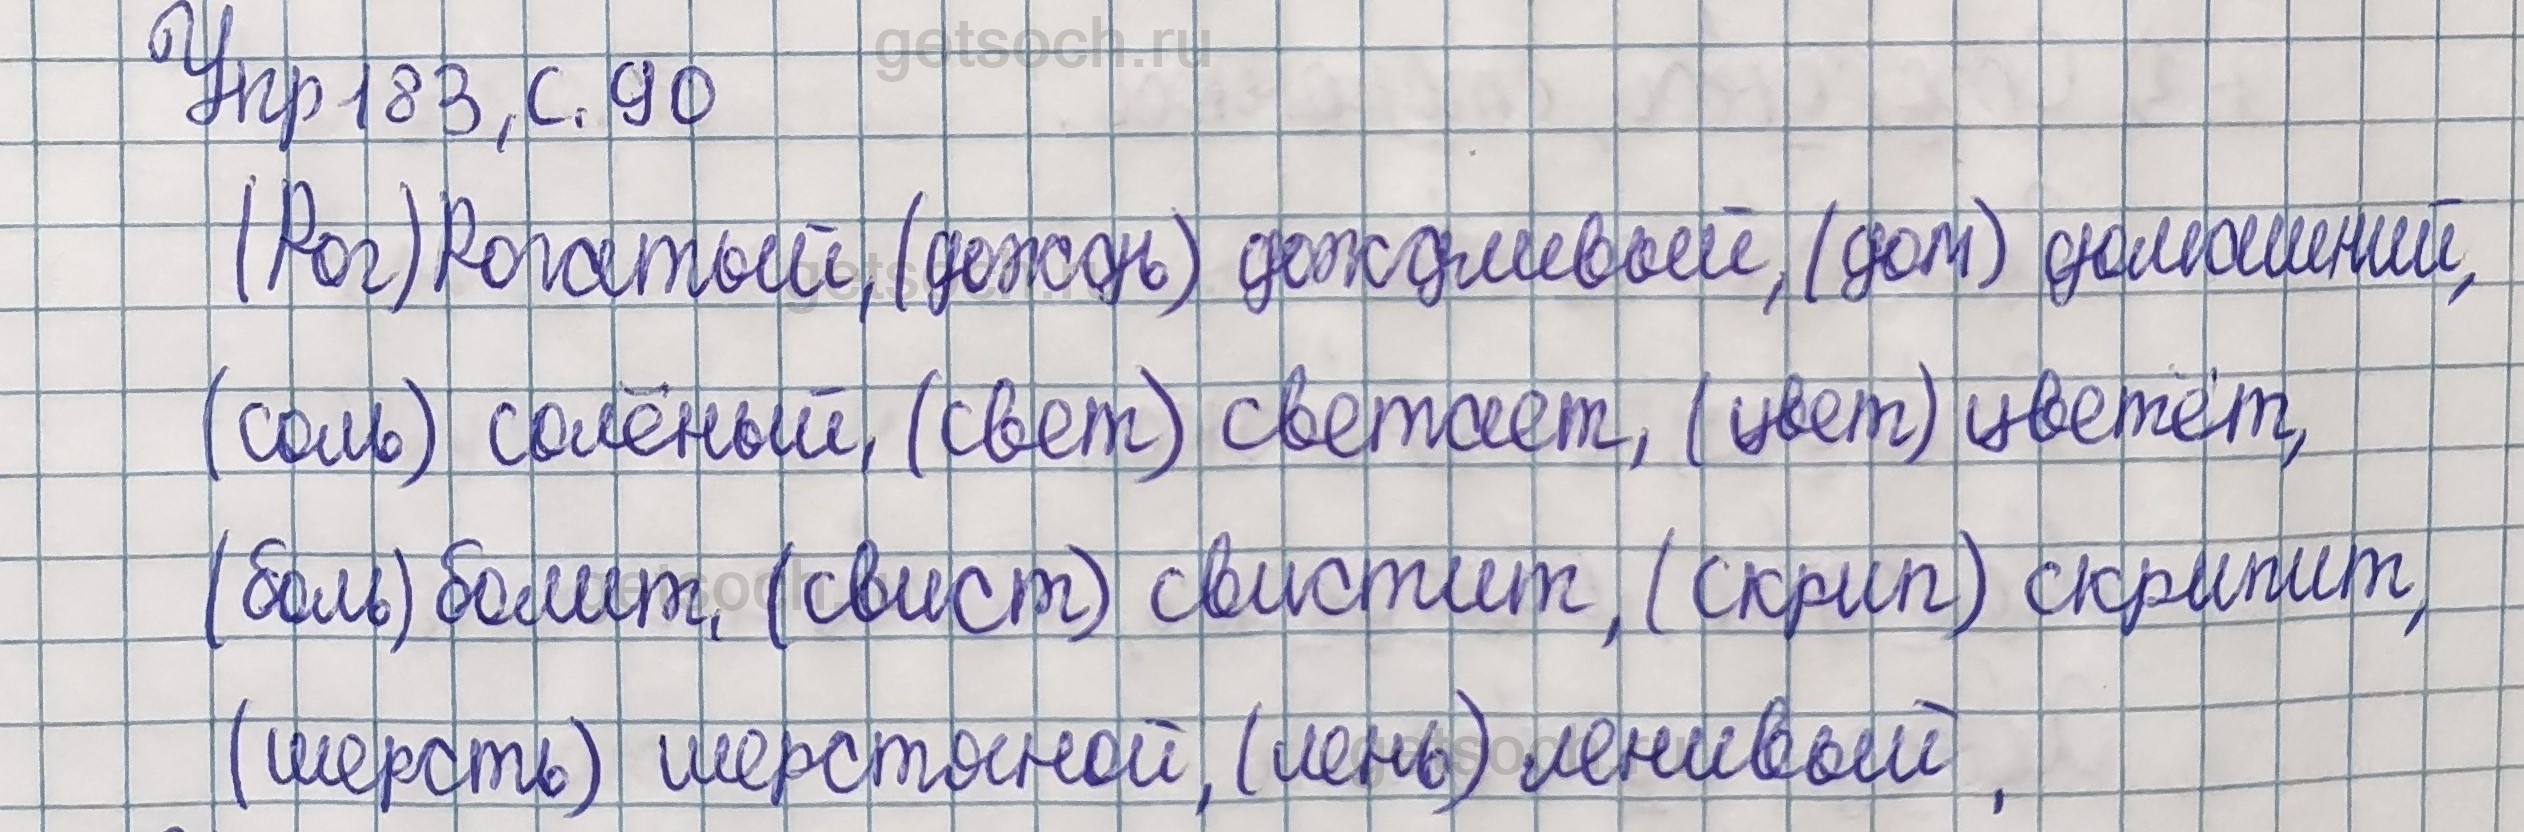 getsoch.ru
Упр 183, с. 90
(Рог) Рогатый, (дождь) дождливый, (дом) домашний,
getsoch.ru
(соль) солёный, (свет) светает, (цвет) цветёт,
(боль) болит, (свист) свистит, (скрип) скрипит,
getsoch.ru
(шерсть) шерстяной, (лень) ленивый,
getsoch.ru